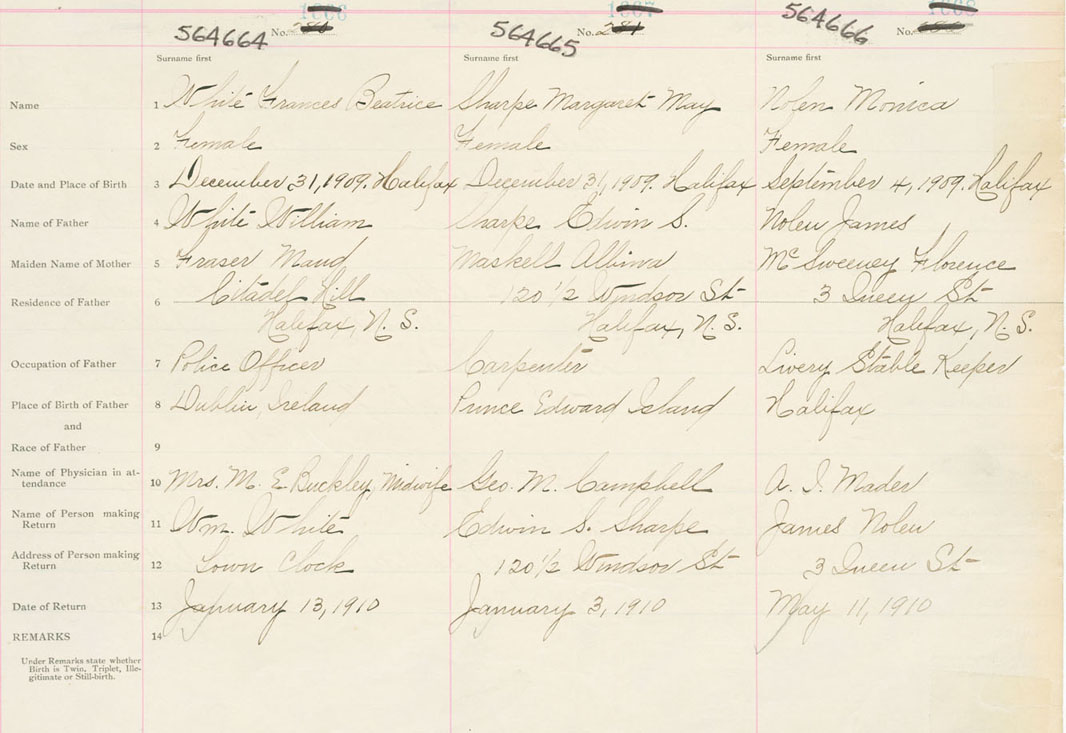 1866 1867 1868
564664 No. 280 564665 No. 281 564666 No. 282
Surname first Surname first Surname first
Name 1 White Frances Beatrice Sharpe Margaret May Nolen Monica
Sex 2 Female Female Female
Date and Place of Birth 3 December 31, 1909. Halifax December 31, 1909. Halifax September 4, 1909. Halifax
Name of Father 4 White William Sharpe Edwin S. Nolen James
Maiden Name of Mother 5 Fraser Maud Maskell Albina McSweeney Florence
Residence of Father 6 Citadel Hill 120 1/2 Windsor St 3 Queen St
Halifax, N.S. Halifax, N.S. Halifax, N.S.
Occupation of Father 7 Police Officer Carpenter Livery Stable Keeper
Place of Birth of Father 8 Dublin, Ireland Prince Edward Island Halifax
and
Race of Father 9
Name of Physician in at-
tendance 10 Mrs. M. E Buckley, Midwife Geo. M. Campbell A. I. Mader
Name of Person making
Return 11 Wm. White Edwin S. Sharpe James Nolen
Address of Person making
Return 12 Town Clock 120 1/2 Windsor St 3 Queen St
Date of Return 13 January 13, 1910 January 3, 1910 May 11, 1910
REMARKS 14
Under Remarks state whether
Birth is Twin, Triplet, Ille-
gitimate or Still-birth.